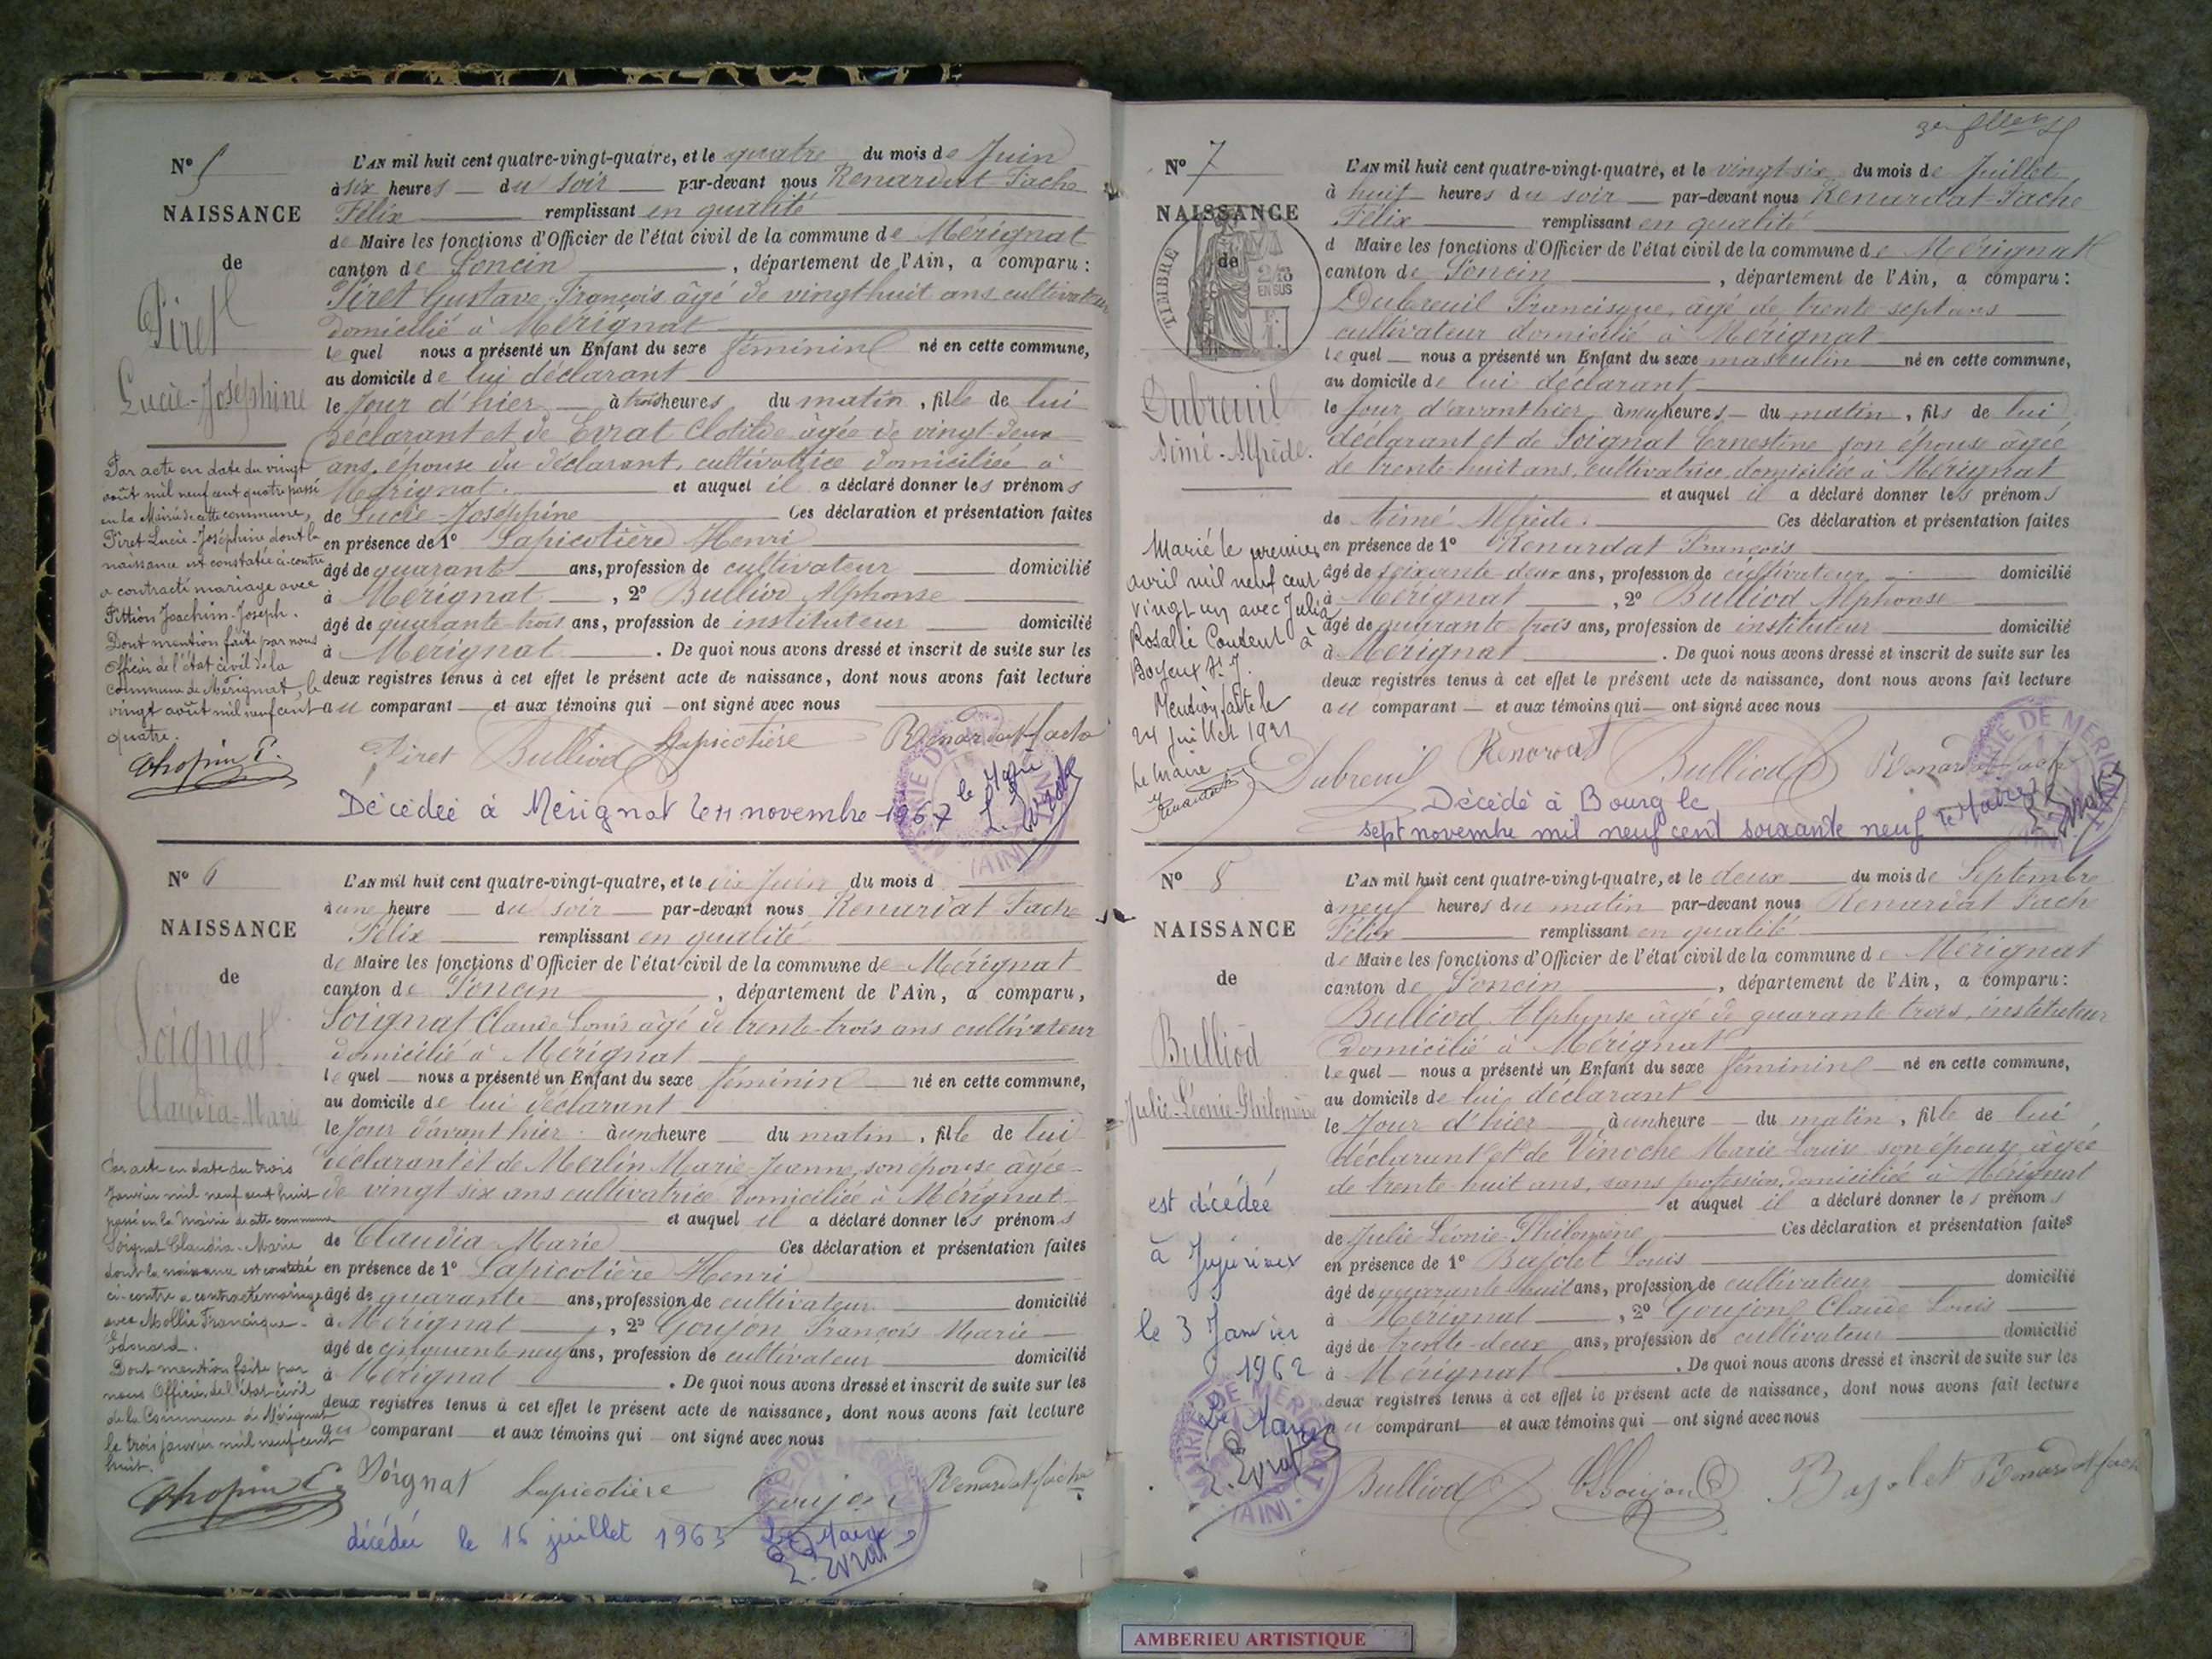 N° 5
NAISSANCE
de
Piret
Lucie-Joséphine
Par acte en date du vingt
août mil neuf cent quatre passé
en la Mairie de cette commune,
Piret Lucie-Joséphine dont la
naissance est constatée ci-contre
a contracté mariage avec
Pittion Joachim-Joseph.
Dont mention faite par nous
Officier de l'état civil de la
commune de Mérignat, le
vingt août mil neuf cent
quatre.
Chopin E.
L'AN mil huit cent quatre-vingt-quatre, et le quatre du mois de Juin
à six heures du soir par-devant nous Renardat Fache
Félix remplissant en qualité
de Maire les fonctions d'Officier de l'état civil de la commune de Mérignat
canton de Poncin, département de l'Ain, a comparu :
Piret Gustave François âgé de vingt-huit ans cultivateur
domicilié à Mérignat
le quel nous a présenté un Enfant du sexe féminin né en cette commune,
au domicile de lui déclarant
le Jour d'hier à trois heures du matin, fille de lui
déclarant et de Evrat Clotilde âgée de vingt-deux
ans, épouse du déclarant, cultivatrice domiciliée à
Mérignat. et auquel il a déclaré donner les prénoms
de Lucie-Joséphine Ces déclaration et présentation faites
en présence de 1° Lapicotière Henri
âgé de quarante ans, profession de cultivateur domicilié
à Mérignat, 2° Bulliod Alphonse
âgé de quarante-trois ans, profession de instituteur domicilié
à Mérignat. De quoi nous avons dressé et inscrit de suite sur les
deux registres tenus à cet effet le présent acte de naissance, dont nous avons fait lecture
au comparant et aux témoins qui ont signé avec nous
Piret Bulliod Lapicotière Renardat-fache
Décédée à Mérignat le 11 novembre 1967 le Maire
L. Evrat
N° 6
NAISSANCE
de
Soignat
Claudia-Marie
Par acte en date du trois
Janvier mil neuf cent huit
passé en la Mairie de cette commune
Soignat Claudia-Marie
dont la naissance est constatée
ci-contre a contracté mariage
avec Mollie Francisque-
Edouard.
Dont mention faite par
nous Officier de l'état civil
de la Commune de Mérignat
le trois janvier mil neuf cent
huit.
Chopin E.
L'AN mil huit cent quatre-vingt-quatre, et le dix Juin du mois d
à une heure du soir par-devant nous Renardat Fache
Félix remplissant en qualité
de Maire les fonctions d'Officier de l'état civil de la commune de Mérignat
canton de Poncin, département de l'Ain, a comparu,
Soignat Claude Louis âgé de trente-trois ans cultivateur
domicilié à Mérignat
le quel nous a présenté un Enfant du sexe féminin né en cette commune,
au domicile de lui déclarant
le Jour d'avant hier à une heure du matin, fille de lui
déclarant et de Merlin Marie-Jeanne, son épouse âgée
de vingt six ans cultivatrice domiciliée à Mérignat
et auquel il a déclaré donner les prénoms
de Claudia Marie Ces déclaration et présentation faites
en présence de 1° Lapicotière Henri
âgé de quarante ans, profession de cultivateur domicilié
à Mérignat, 2° Goujon François Marie
âgé de cinquante-neuf ans, profession de cultivateur domicilié
à Mérignat. De quoi nous avons dressé et inscrit de suite sur les
deux registres tenus à cet effet le présent acte de naissance, dont nous avons fait lecture
au comparant et aux témoins qui ont signé avec nous
Soignat Lapicotière Goujon Renardat-fache
décédée le 15 juillet 1963 Le Maire
L. Evrat
N° 7
NAISSANCE
de
TIMBRE
2/10
EN SUS
Dubreuil
Aimé-Alfrède.
Marié le premier
avril mil neuf cent
vingt un avec Julia
Rosalie Coudent à
Boyeux St J.
Mention faite le
24 juillet 1921
Le Maire
Renardat
L'AN mil huit cent quatre-vingt-quatre, et le vingt-six du mois de Juillet
à huit heures du soir par-devant nous Renardat-Fache
Félix remplissant en qualité
d Maire les fonctions d'Officier de l'état civil de la commune de Mérignat
canton de Poncin, département de l'Ain, a comparu :
Dubreuil Francisque, âgé de trente-sept ans
cultivateur domicilié à Mérignat
le quel nous a présenté un Enfant du sexe masculin né en cette commune,
au domicile de lui déclarant
le Jour d'avant hier à neuf heures du matin, fils de lui
déclarant et de Soignat Ernestine son épouse âgée
de trente-huit ans, cultivatrice, domiciliée à Mérignat
et auquel il a déclaré donner les prénoms
de Aimé Alfrède. Ces déclaration et présentation faites
en présence de 1° Renardat François
âgé de soixante-deux ans, profession de cultivateur domicilié
à Mérignat, 2° Bulliod Alphonse
âgé de quarante trois ans, profession de instituteur domicilié
à Mérignat. De quoi nous avons dressé et inscrit de suite sur les
deux registres tenus à cet effet le présent acte de naissance, dont nous avons fait lecture
au comparant et aux témoins qui ont signé avec nous
Dubreuil Renardat Bulliod Renardat-fache
Décédé à Bourg le
sept novembre mil neuf cent soixante neuf le Maire
L. Evrat
N° 8
NAISSANCE
de
Bulliod
Julie-Léonie-Philomène
est décédée
à Jujurieux
le 3 Janvier
1962
Le Maire
L. Evrat
MAIRIE DE MERIGNAT
(AIN)
L'AN mil huit cent quatre-vingt-quatre, et le deux du mois de Septembre
à neuf heures du matin par-devant nous Renardat Fache
Félix remplissant en qualité
de Maire les fonctions d'Officier de l'état civil de la commune de Mérignat
canton de Poncin, département de l'Ain, a comparu :
Bulliod Alphonse âgé de quarante trois, instituteur
domicilié à Mérignat
le quel nous a présenté un Enfant du sexe féminin né en cette commune,
au domicile de lui déclarant
le Jour d'hier à une heure du matin, fille de lui
déclarant et de Vinoche Marie Louise son épouse âgée
de trente-huit ans, sans profession, domiciliée à Mérignat
et auquel il a déclaré donner les prénoms
de Julie Léonie-Philomène Ces déclaration et présentation faites
en présence de 1° Basolet Louis
âgé de quarante huit ans, profession de cultivateur domicilié
à Mérignat, 2° Goujon Claude Louis
âgé de trente-deux ans, profession de cultivateur domicilié
à Mérignat. De quoi nous avons dressé et inscrit de suite sur les
deux registres tenus à cet effet le présent acte de naissance, dont nous avons fait lecture
au comparant et aux témoins qui ont signé avec nous
Bulliod Goujon Basolet Renardat-fache
AMBERIEU ARTISTIQUE